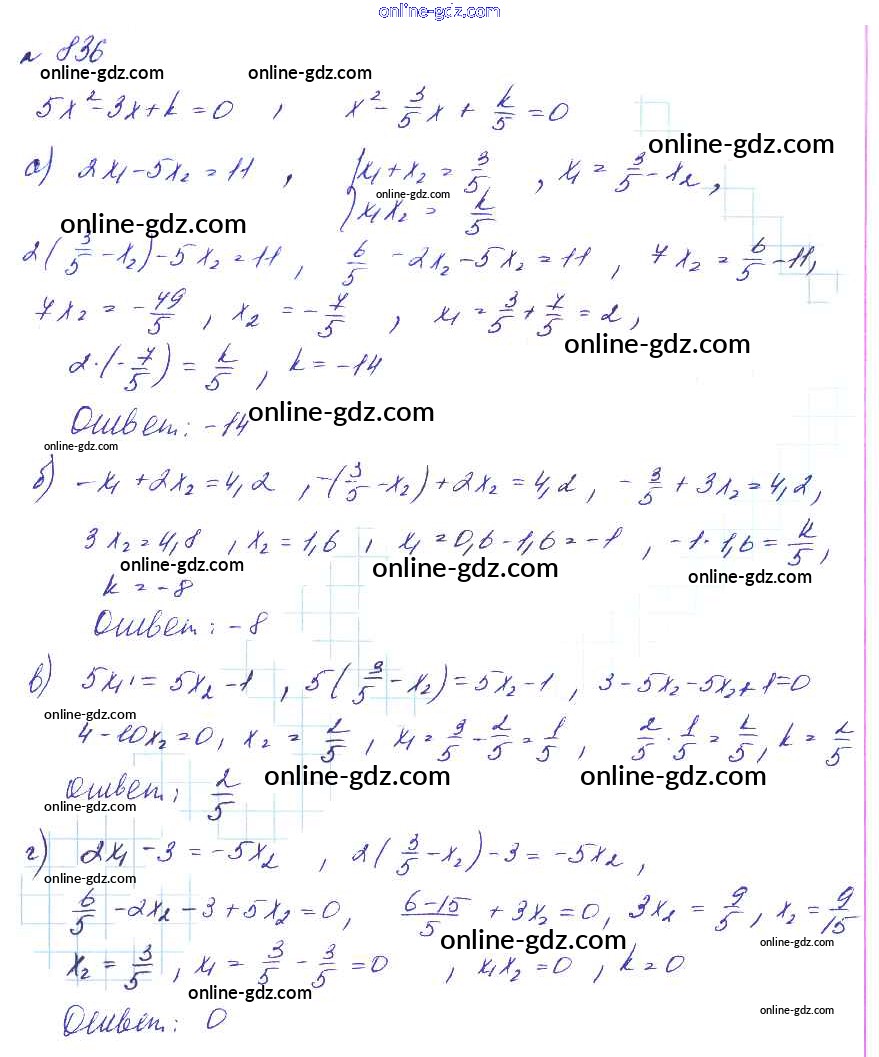 online-gdz.com
№ 836
online-gdz.com online-gdz.com
5x² - 3x + k = 0 , x² - 3/5 x + k/5 = 0
online-gdz.com
а) 2x₁ - 5x₂ = 11 , { x₁ + x₂ = 3/5 , x₁ = 3/5 - x₂ ,
online-gdz.com
x₁x₂ = k/5
online-gdz.com
2(3/5 - x₂) - 5x₂ = 11 , 6/5 - 2x₂ - 5x₂ = 11 , 7x₂ = 6/5 - 11,
7x₂ = -49/5 , x₂ = -7/5 , x₁ = 3/5 + 7/5 = 2 ,
online-gdz.com
2·(-7/5) = k/5 , k = -14
online-gdz.com
Ответ: -14
online-gdz.com
б) -x₁ + 2x₂ = 4,2 , -(3/5 - x₂) + 2x₂ = 4,2 , -3/5 + 3x₂ = 4,2 ,
3x₂ = 4,8 , x₂ = 1,6 , x₁ = 0,6 - 1,6 = -1 , -1·1,6 = k/5 ,
online-gdz.com online-gdz.com online-gdz.com
k = -8
Ответ: -8
в) 5x₁ = 5x₂ - 1 , 5(3/5 - x₂) = 5x₂ - 1 , 3 - 5x₂ - 5x₂ + 1 = 0
online-gdz.com
4 - 10x₂ = 0 , x₂ = 2/5 , x₁ = 3/5 - 2/5 = 1/5 , 2/5 · 1/5 = k/5 , k = 2/5
online-gdz.com online-gdz.com
Ответ: 2/5
online-gdz.com
г) 2x₁ - 3 = -5x₂ , 2(3/5 - x₂) - 3 = -5x₂ ,
online-gdz.com
6/5 - 2x₂ - 3 + 5x₂ = 0 , (6-15)/5 + 3x₂ = 0 , 3x₂ = 9/5 , x₂ = 9/15
online-gdz.com online-gdz.com
x₂ = 3/5 , x₁ = 3/5 - 3/5 = 0 , x₁x₂ = 0 , k = 0
online-gdz.com
Ответ: 0
online-gdz.com